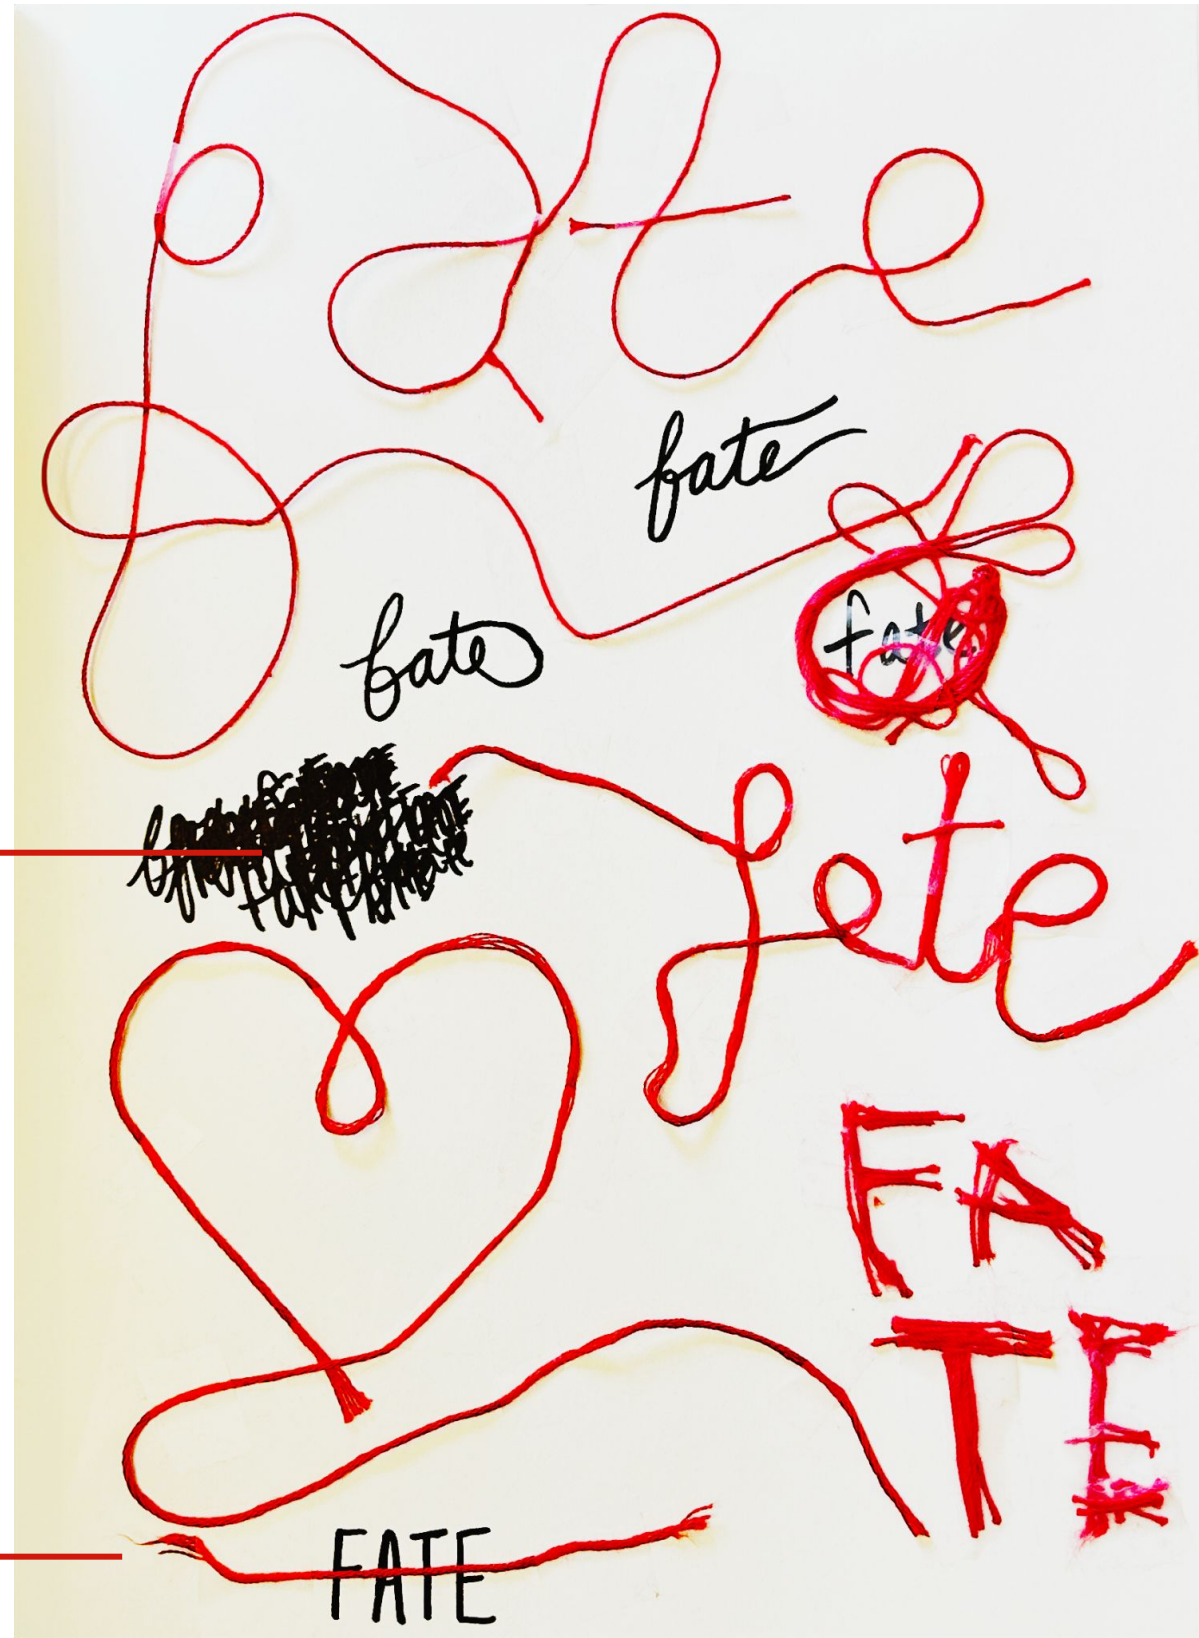 fate
fate
fate
fate
fate
FA
TE
FATE